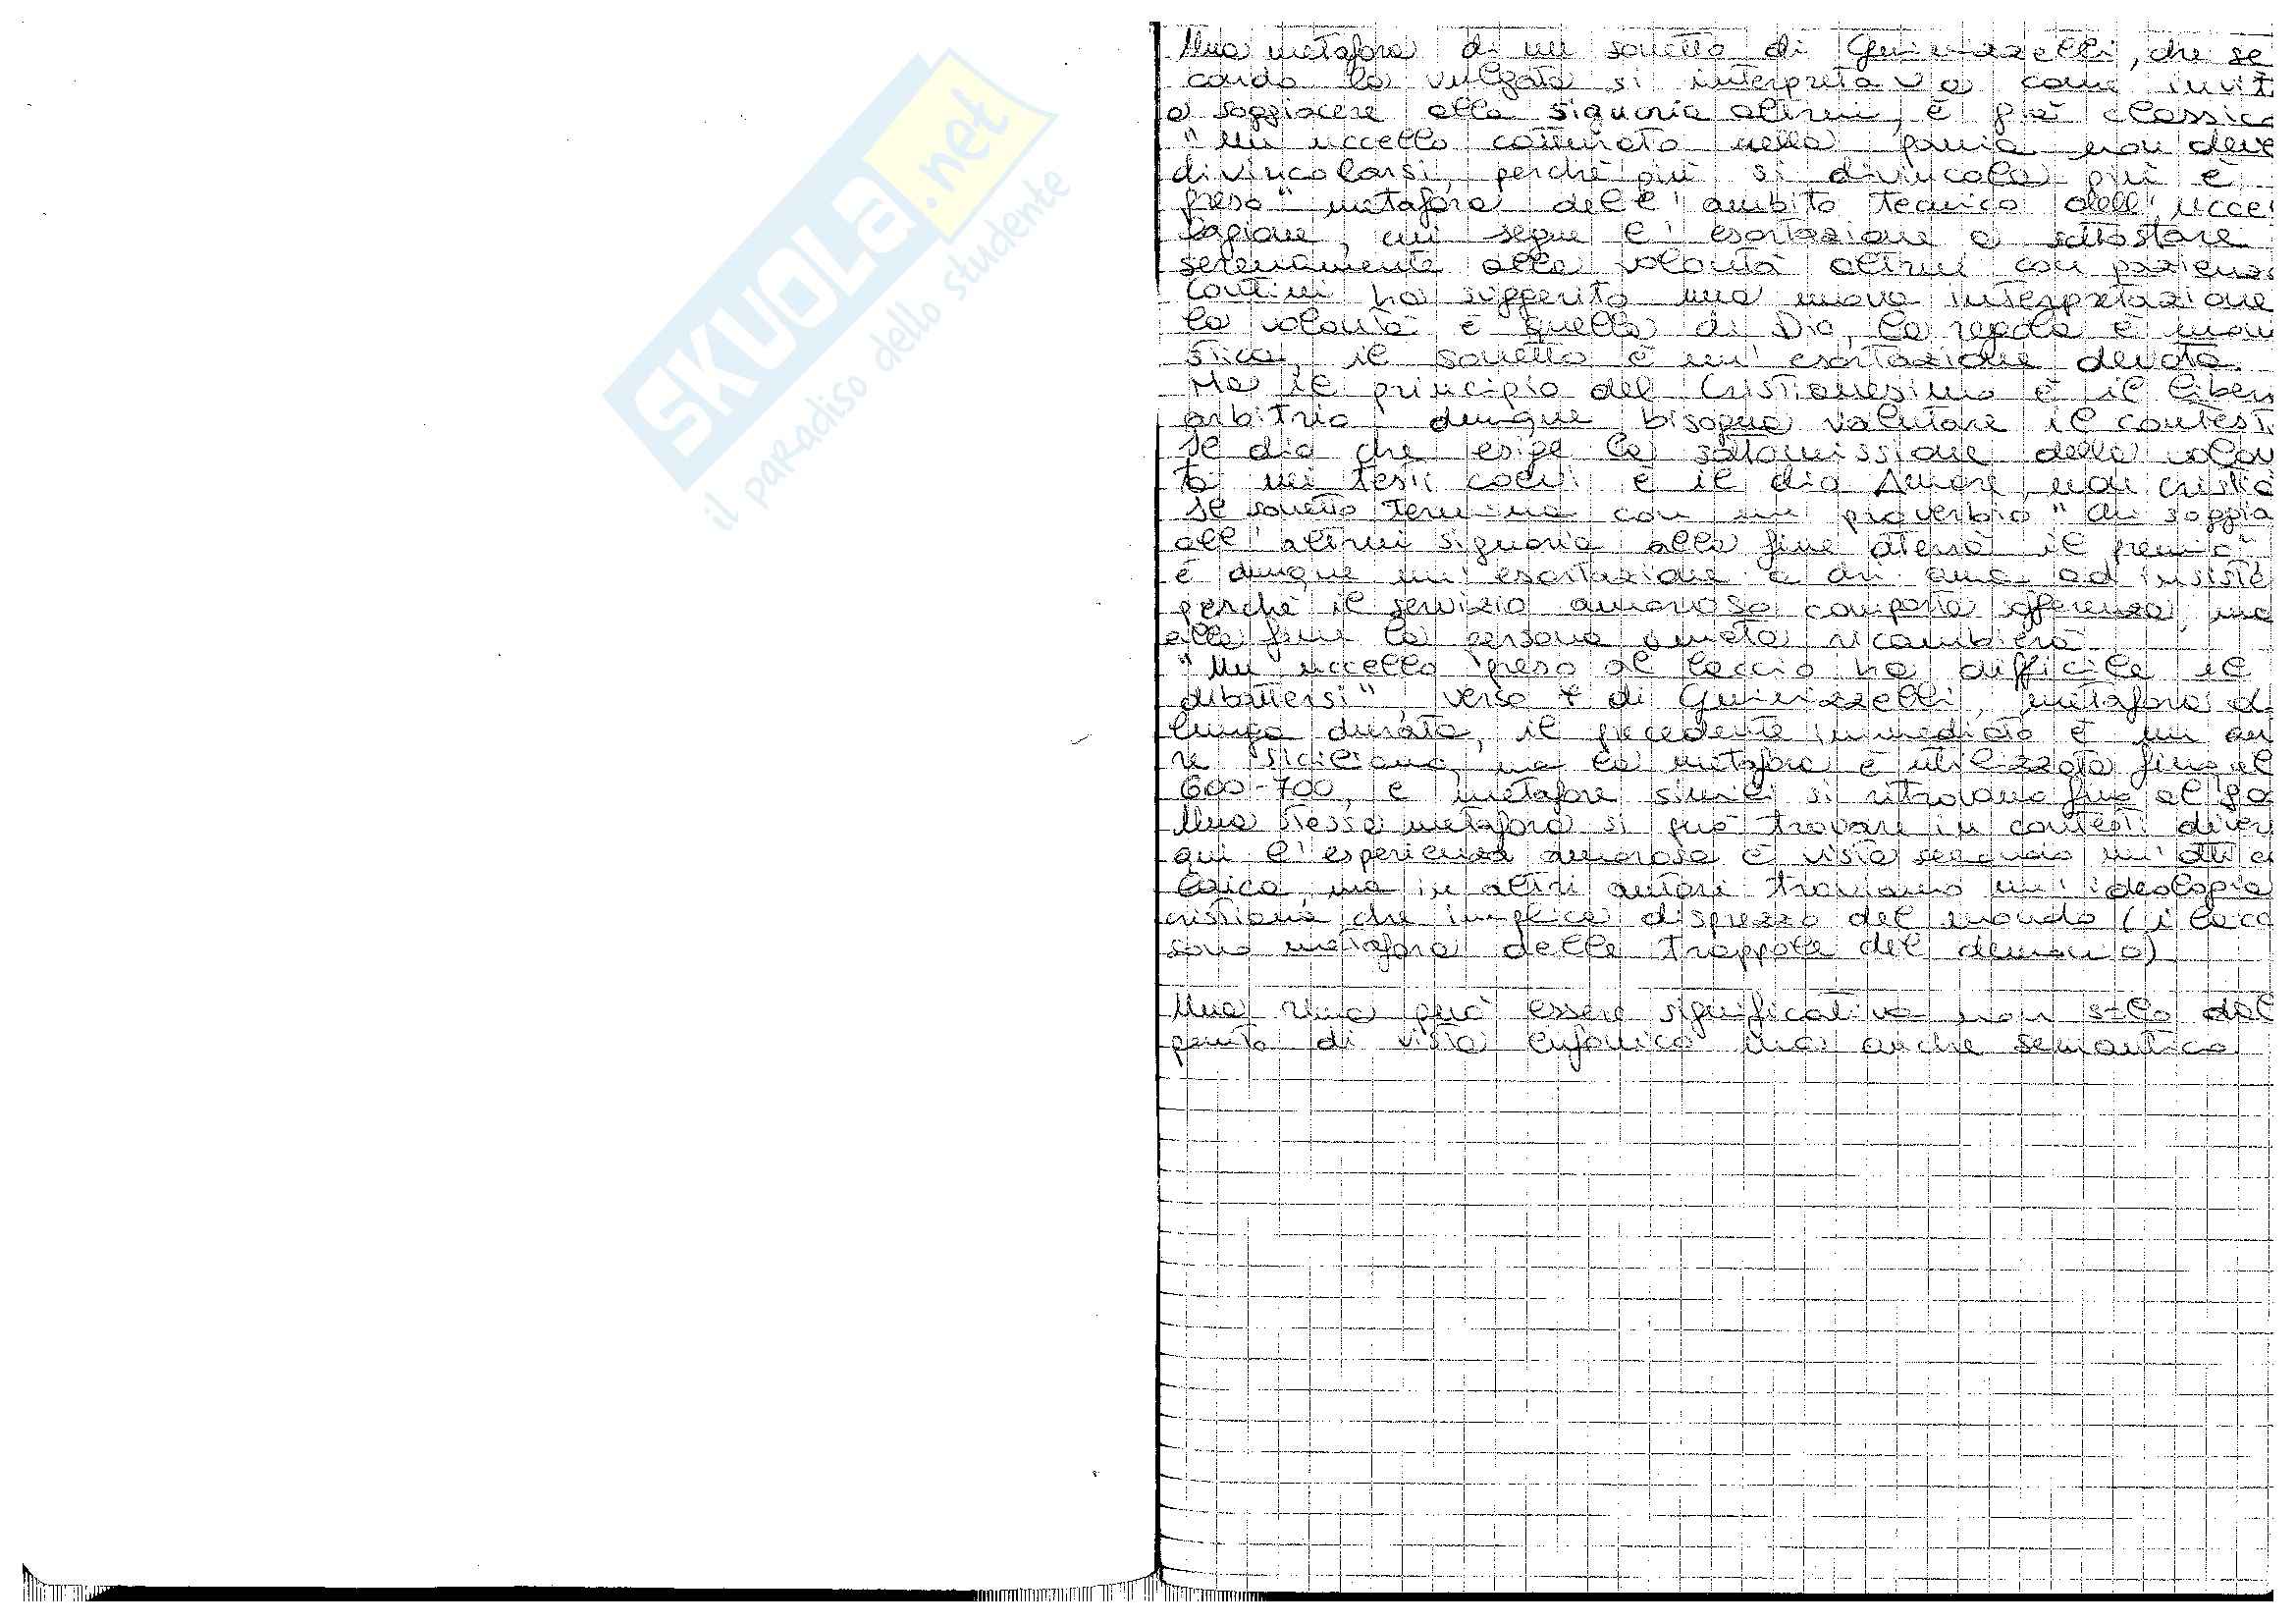 SKUOLA.net
il paradiso dello studente
Una metafora di un sonetto di Guinizzelli, che se
condo la vulgata si interpretava come invit
a soggiacere alla signoria altrui, è già classica
"Un uccello catturato nella pania non deve
divincolarsi, perchè più si divincola più è
preso" metafora dell'ambito tecnico dell'uccel
lagione, cui segue l'esortazione a sottostare
serenamente alla volontà altrui con pazienza
Contini ha suggerito una nuova interpretazione
la volontà è quella di Dio, la regola è mona
stica, il sonetto è un'esortazione devota.
Ma il principio del Cristianesimo è il liber
arbitrio dunque bisogna valutare il contest
Il dio che esige la sottomissione della volon
tà nei testi coevi è il dio Amore, non cristia
Il sonetto termina con un proverbio "chi soggia
all'altrui signoria alla fine otterrà il premio",
è dunque un'esortazione a chi ama ad insiste
perchè il servizio amoroso comporta sofferenza, ma
alla fine la persona amata ricambierà
"Un uccello preso al laccio ha difficile il
dibattersi", verso 7 di Guinizzelli, metafora di
lunga durata, il precedente immediato è un au
re siciliano, ma la metafora è utilizzata fino al
600-700, e metafore simili si ritrovano fino al '90
Una stessa metafora si può trovare in contesti diver
qui l'esperienza amorosa è vista secondo un'ottica
laica, ma in altri autori troviamo un'ideologia
cristiana che implica disprezzo del mondo (i lacc
sono metafora delle trappole del demonio)
Una rima può essere significativa non solo dal
punto di vista eufonico ma anche semantico